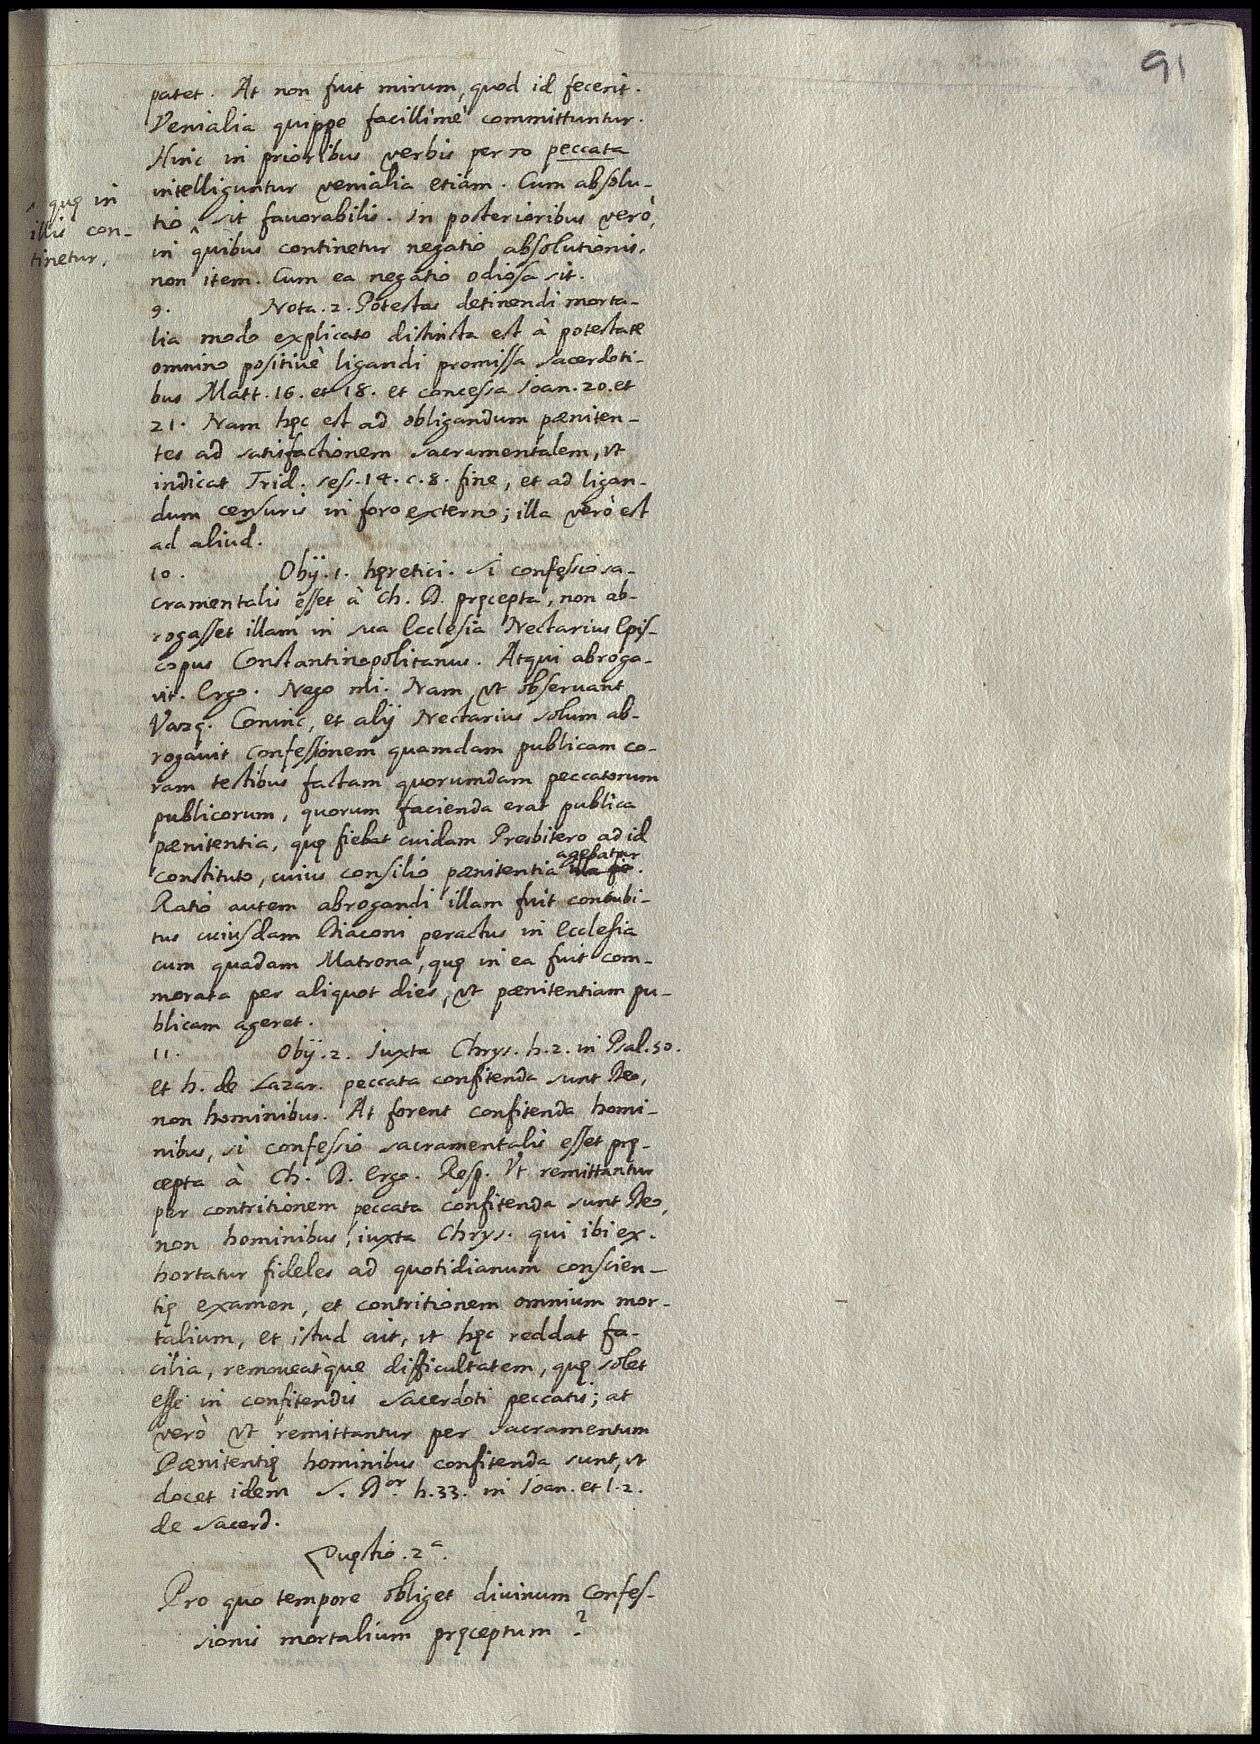 91
patet. At non fuit mirum, quod id fecerit.
Venialia quippe facillimè committuntur.
Hinc in prioribus verbis per το peccata
intelliguntur venialia etiam. Cum absolu-
tio ^ sit favorabilis. In posterioribus verò,
^ quę in
illis con-
tinetur.
in quibus continetur negatio absolutionis,
non item. Cum ea negatio odiosa sit.
9. Nota. 2. Potestas detinendi morta-
lia modo explicato distincta est à potestate
omnino positivè ligandi promissa sacerdoti-
bus Matt. 16. et 18. et concessa Ioan. 20. et
21. Nam hęc est ad obligandum pœniten-
tes ad satisfactionem sacramentalem, vt
indicat Trid. sess. 14. c. 8. fine, et ad ligan-
dum censuris in foro externo; illa verò est
ad aliud.
10. Obij. 1. hęretici. Si confessio sa-
cramentalis esset à Ch. D. pręcepta, non ab-
rogasset illam in sua Ecclesia Nectarius Epis-
copus Constantinopolitanus. Atqui abroga-
vit. Ergo. Nego mi. Nam, vt observant
Vazq. Coninc, et alij Nectarius solum ab-
rogavit confessionem quamdam publicam co-
ram testibus factam quorumdam peccatorum
publicorum, quorum facienda erat publica
pœnitentia, quę fiebat cuidam Presbitero ad id
constituto, cuius consilio pœnitentia agebatur.
Ratio autem abrogandi illam fuit concubi-
tus cuiusdam Diaconi peractus in Ecclesia
cum quadam Matrona, quę in ea fuit com-
morata per aliquot dies, vt pœnitentiam pu-
blicam ageret.
11. Obij. 2. Iuxta Chrys. h. 2. in Psal. 50.
et h. de Lazar. peccata confitenda sunt Deo,
non hominibus. At forent confitenda homi-
nibus, si confessio sacramentalis esset prę-
cepta à Ch. D. Ergo. Resp. Vt remittantur
per contritionem peccata confitenda sunt Deo,
non hominibus, iuxta Chrys. qui ibi ex-
hortatur fideles ad quotidianum conscien-
tię examen, et contritionem omnium mor-
talium, et istud ait, vt hęc reddat fa-
cilia, removeatque difficultatem, quę solet
esse in confitendis sacerdoti peccatis; at
verò vt remittantur per sacramentum
Pœnitentię hominibus confitenda sunt, vt
docet idem S. Dor. h. 33. in Ioan. et l. 2.
de sacerd.
Quęstio. 2ª.
Pro quo tempore obliget divinum confes-
sionis mortalium pręceptum?